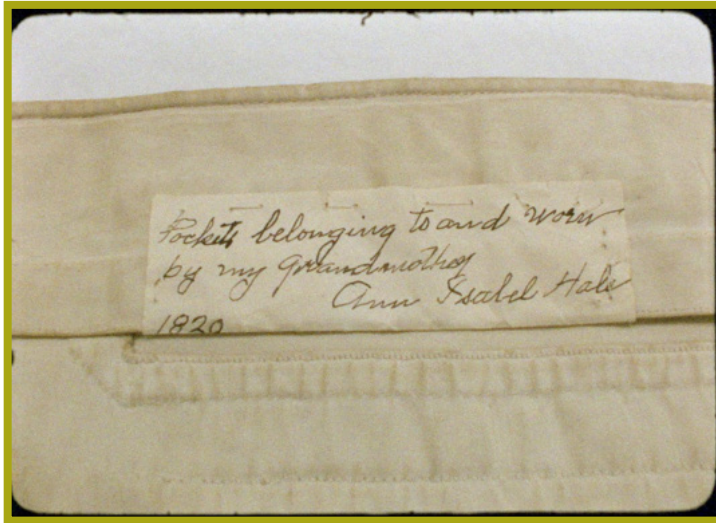 Pockets belonging to and worn
by my Grandmother
Ann Isabel Hale
1820